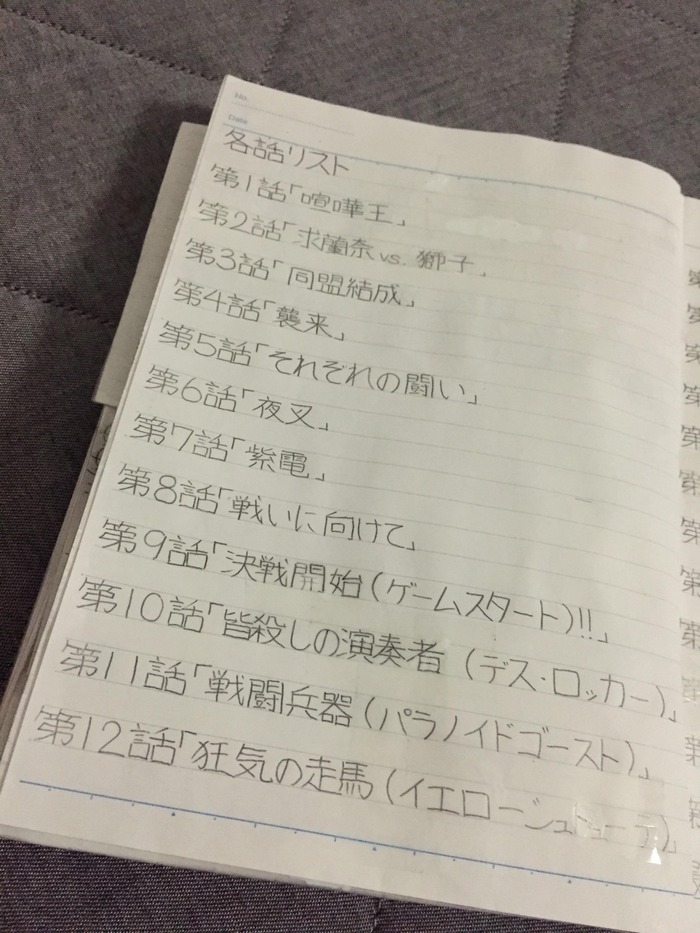 No.
Date
各話リスト
第1話「喧嘩王」
第2話「求蘭奈vs.獅子」
第3話「同盟結成」
第4話「襲来」
第5話「それぞれの闘い」
第6話「夜叉」
第7話「紫電」
第8話「戦いに向けて」
第9話「決戦開始(ゲームスタート)!!」
第10話「皆殺しの演奏者(デス·ロッカー)」
第11話「戦闘兵器(パラノイドゴースト)」
第12話「狂気の走馬(イエロージュ
第
第
第
第
第
第
第
第
第
第
第